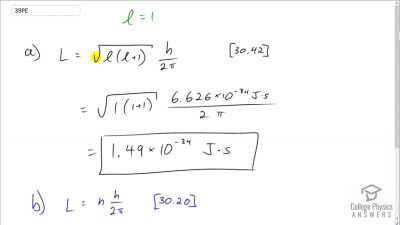 39PE
ℓ = 1
a) L = √ℓ(ℓ+1) h/2π [30.42]
= √1(1+1) 6.626×10⁻³⁴ J·s / 2π
= 1.49×10⁻³⁴ J·s
b) L = n h/2π [30.20]
College Physics
ANSWERS